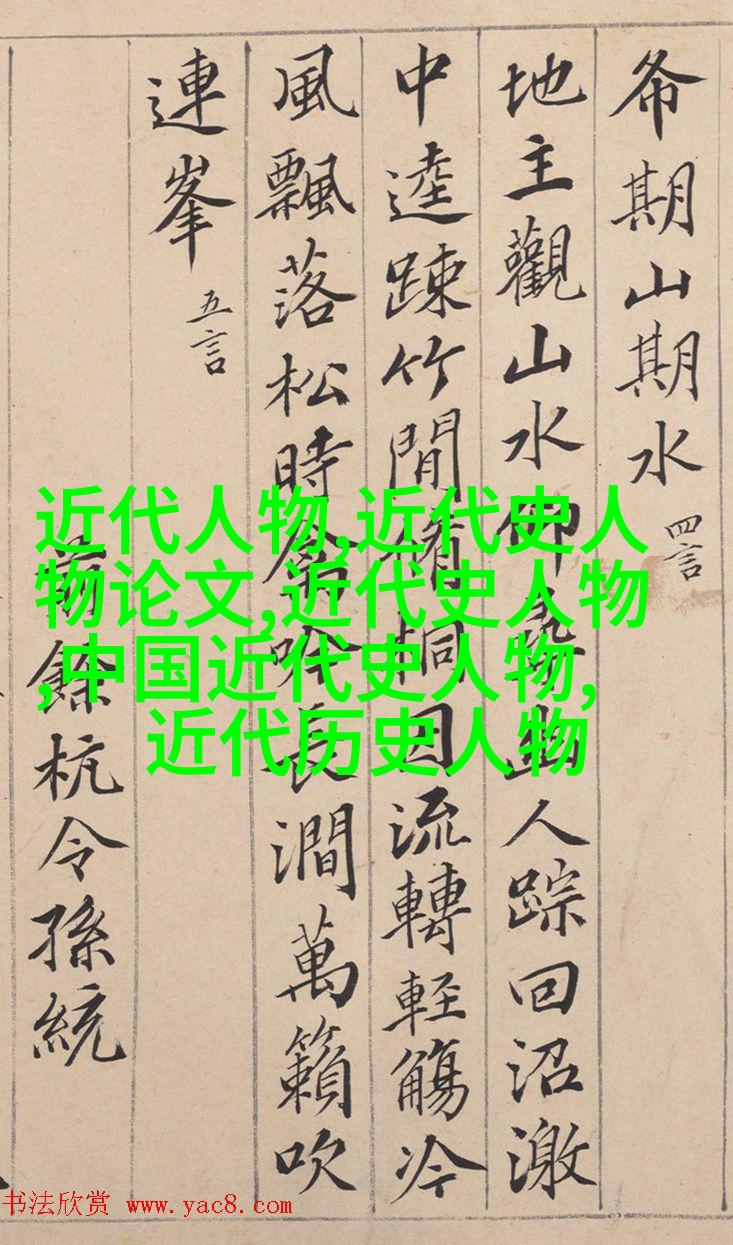 希期山期水 四言
地主觀山水仰尋幽人踪回沼激
中逵踈竹間脩桐因流轉輕觴冷
風飄落松時禽吟長澗萬籟吹
連峯 五言
前餘杭令孫統
近代人物,近代史人
物论文,近代史人物
,中国近代史人物,
近代历史人物
书法欣赏 www.yac8.com